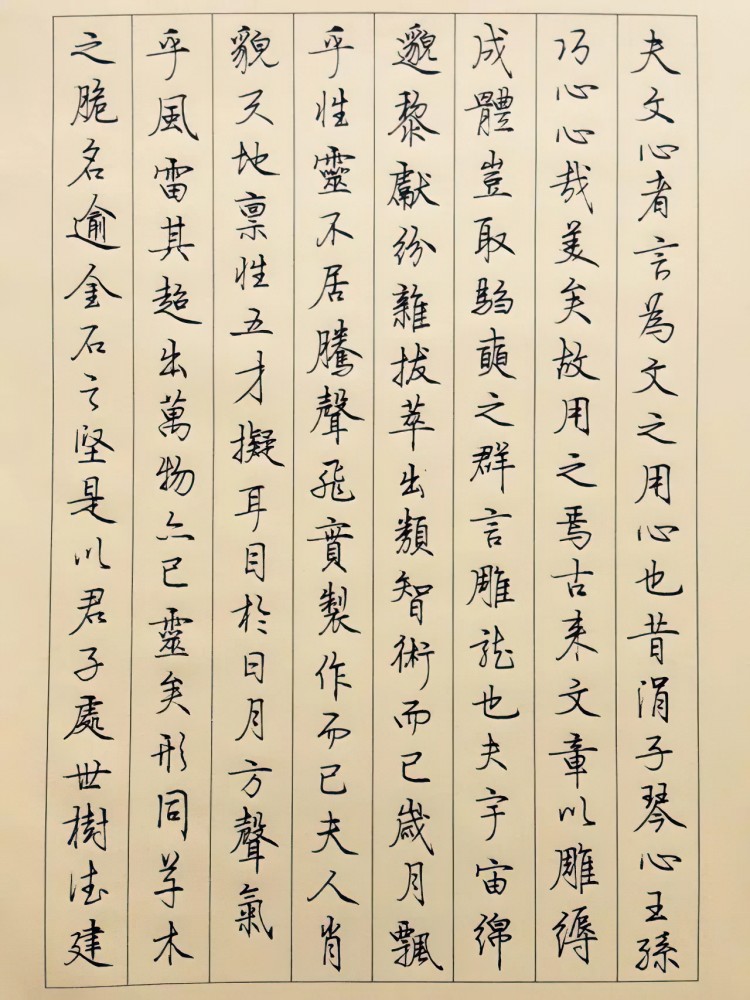 夫文心者言為文之用心也昔涓子琴心王孫
巧心心哉美矣故用之焉古來文章以雕縟
成體豈取騶奭之群言雕龍也夫宇宙綿
邈黎獻紛雜拔萃出類智術而已歲月飄
乎性靈不居騰聲飛實製作而已夫人肖
貌天地稟性五才擬耳目於日月方聲氣
乎風雷其超出萬物亦已靈矣形同草木
之脆名逾金石之堅是以君子處世樹德建